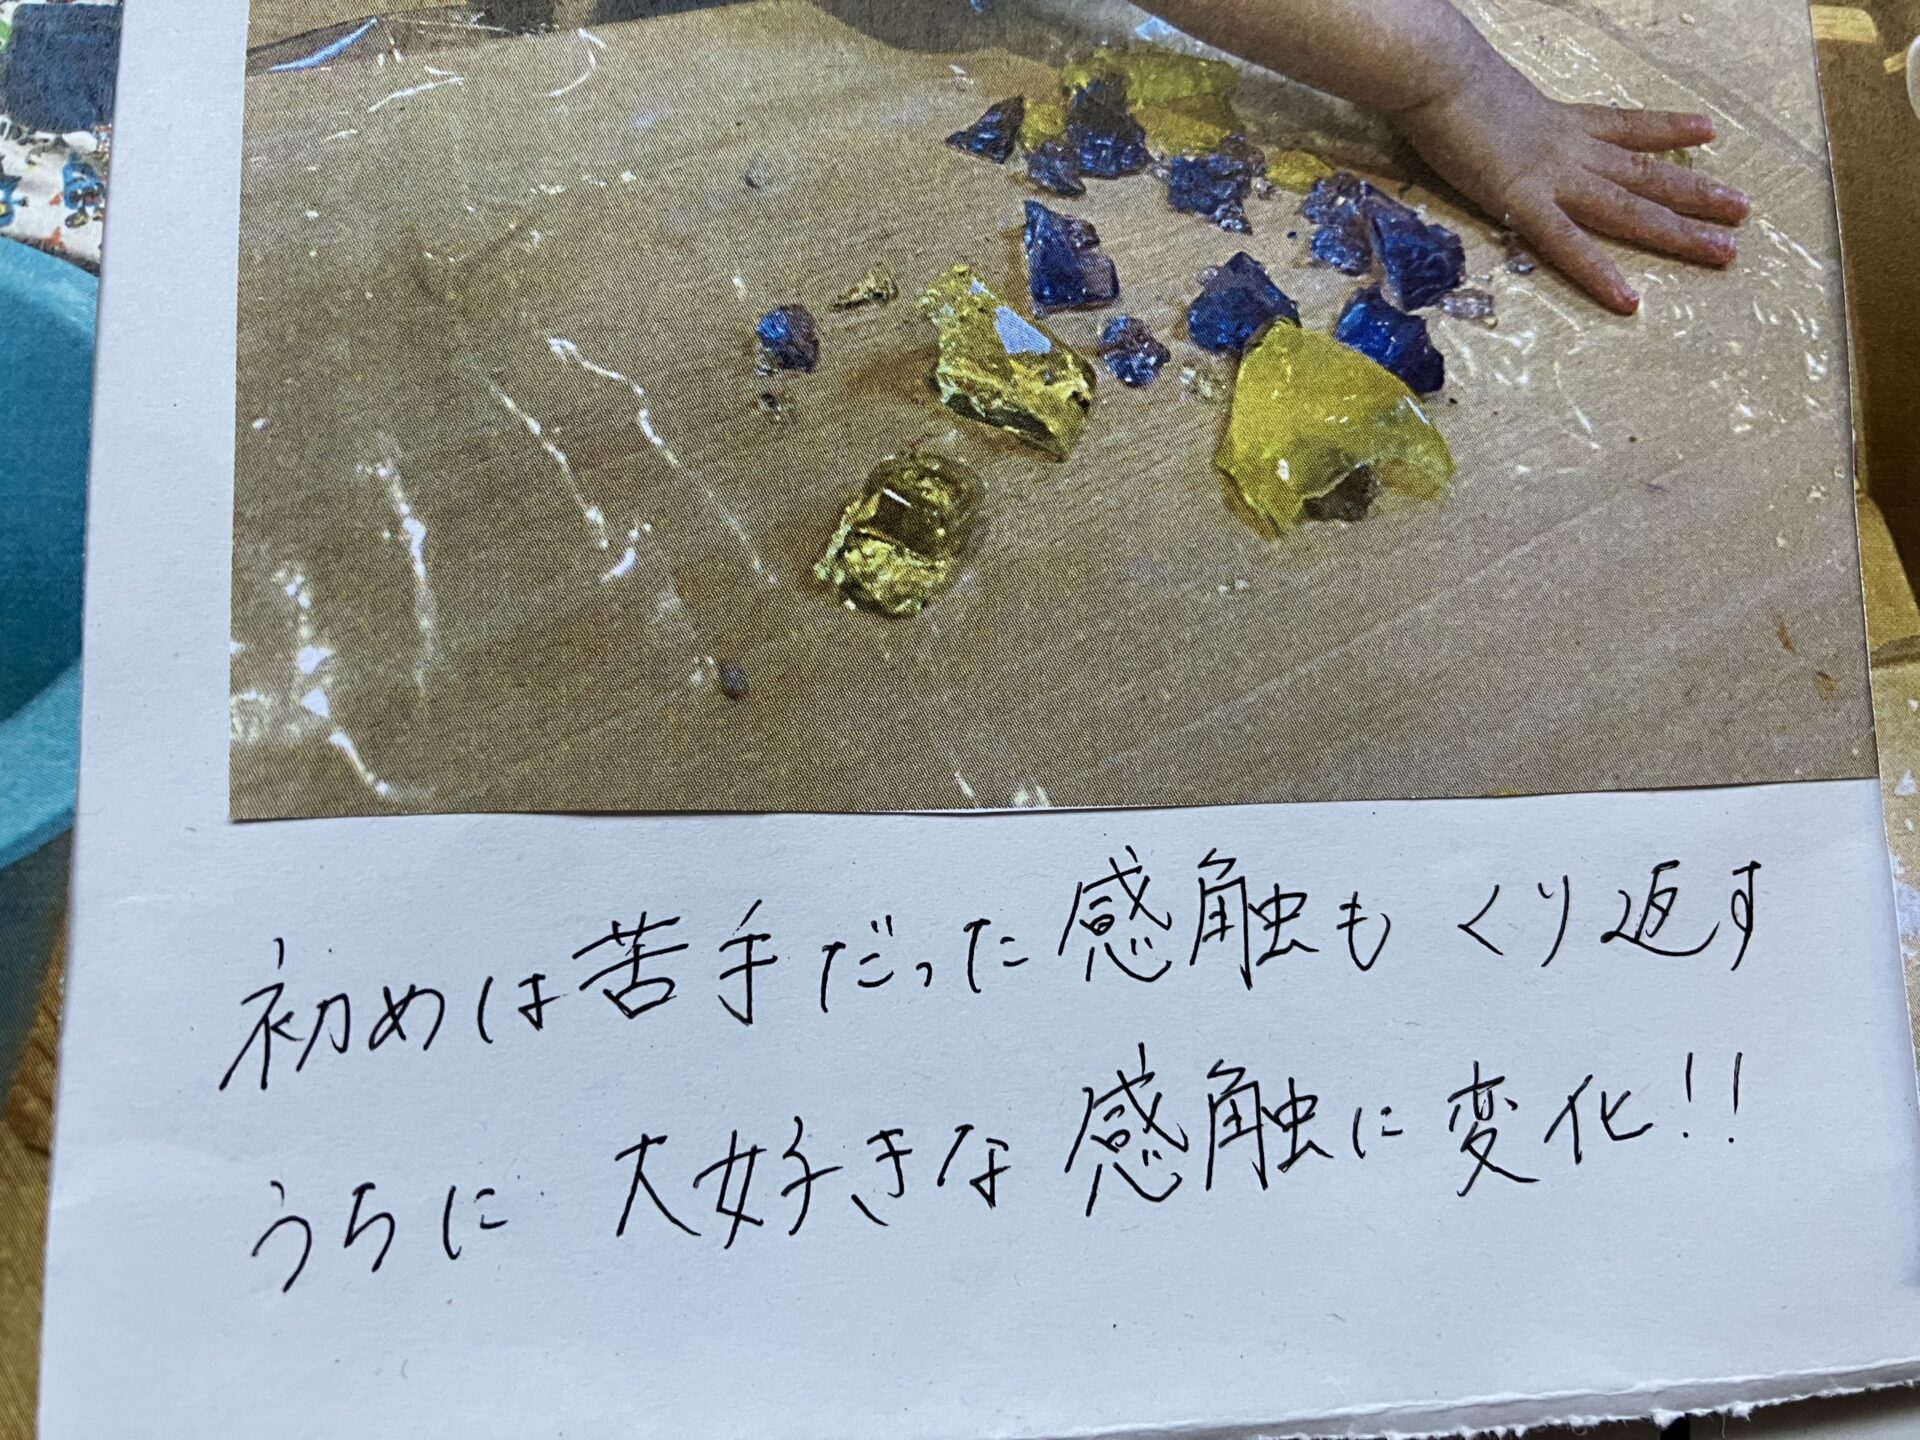 初めは苦手だった感触もくり返す
うちに大好きな感触に変化!!